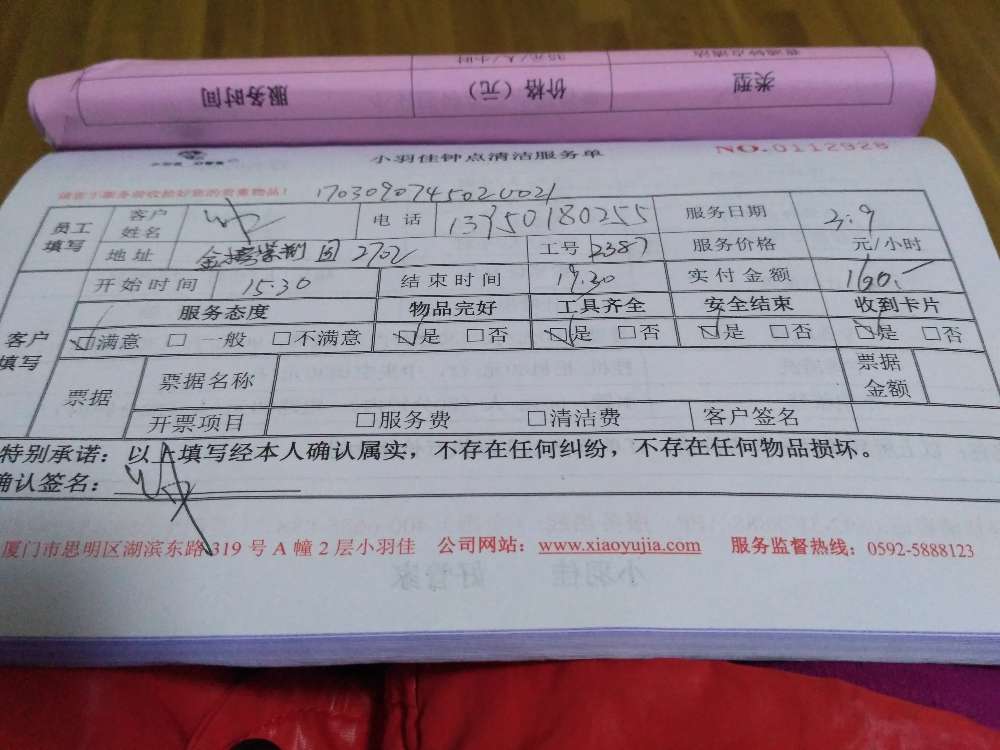 普通钟点清洁 35元/人/小时
类型 价格（元） 服务时间
小羽佳 好管家
小羽佳钟点清洁服务单 NO.0112928
请在于服务前收捡好您的贵重物品！ 170309074502002 1
员工填写 客户姓名 电话 13750180255 服务日期 3.9
地址 2702 工号 2387 服务价格 元/小时
客户填写 开始时间 15.30 结束时间 19.30 实付金额 160.-
服务态度 物品完好 工具齐全 安全结束 收到卡片
☑满意 □一般 □不满意 ☑是 □否 ☑是 □否 ☑是 □否 ☑是 □否
票据 票据名称 票据金额
开票项目 □服务费 □清洁费 客户签名
特别承诺：以上填写经本人确认属实，不存在任何纠纷，不存在任何物品损坏。
确认签名：
厦门市思明区湖滨东路319号A幢2层小羽佳 公司网站：www.xiaoyujia.com 服务监督热线：0592-5888123
小羽佳 好管家